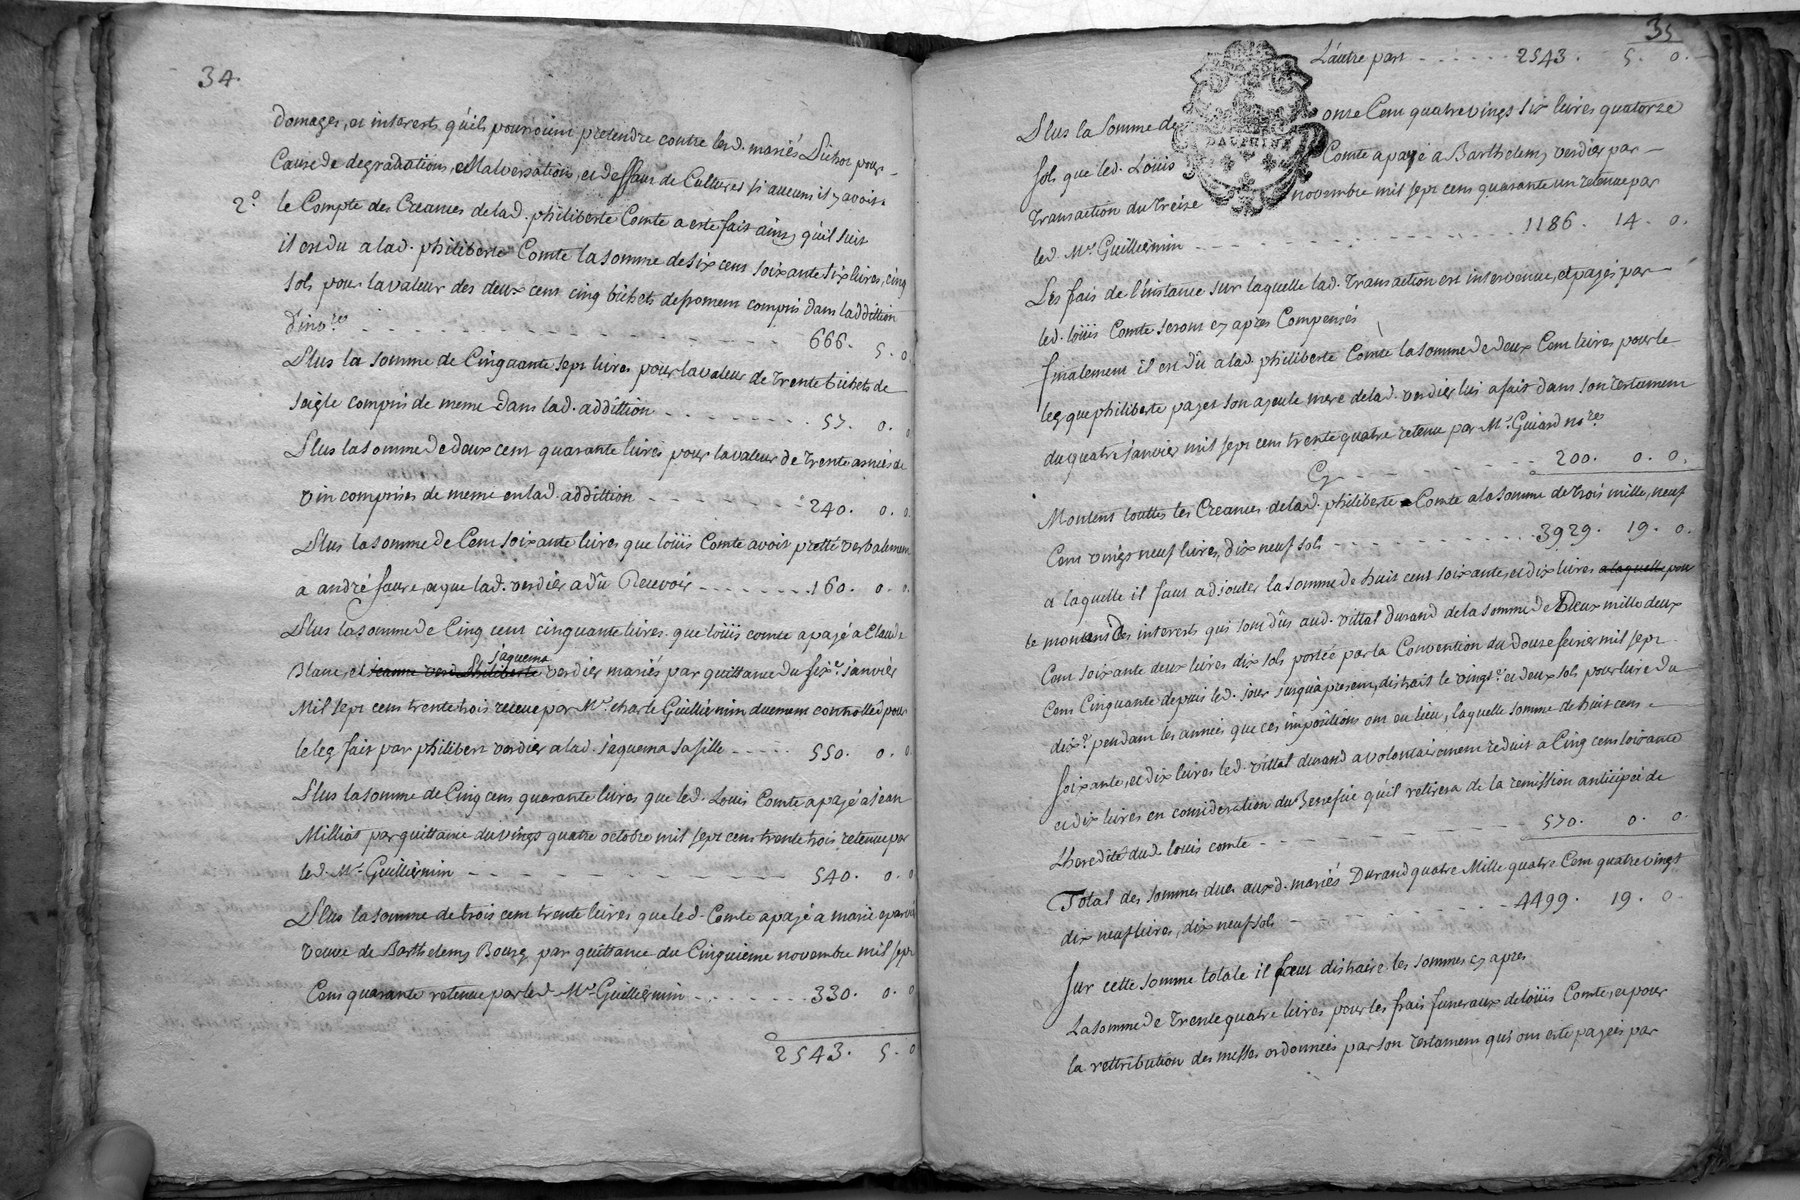 34.
domages, et interests, qu'ils pourroient pretendre contre lesd. mariés Dichor pour
Cause de degradations, Malversation, et deffaut de Cultures si aucuns il y avoit.
2.° le Compte des Creances de lad. philiberte Comte a esté fait ainsy qu'il suit
il est du a lad. philiberte Comte la somme de six cent soixante six livres, cinq
sols pour la valeur des deux cent cinq bichets de froment compris dans l'addition
d'inv.res 666. 5. 0
Plus la somme de Cinquante sept livres pour la valeur de trente bichets de
saigle compris de meme dans lad. addittion 57. 0. 0
Plus la somme de deux cent quarante livres pour la valeur de trente asnées de
vin comprises de meme en lad. addittion 240. 0. 0.
Plus la somme de Cent soixante livres que loüis Comte avoit pretté verbalement
a andré faure, et que lad. verdier a dû Recevoir 160. 0. 0.
Plus la somme de Cinq cent cinquante livres que loüis comte a payé a Claude
Blanc, et jeanne verd Philiberte jaquema verdier mariés par quittance du six.e janvier
Mil sept cens trente trois receue par M.e charle Guilliermin duement controllée pour
le leg fait par philibert verdier a lad. jaquema sa fille 550. 0. 0
Plus la somme de Cinq cens quarante livres que led. Louis Comte a payé a jean
Milliat par quittance du vingt quatre octobre mil sept cens trente trois, retenue par
led. M.e Guilliermin 540. 0. 0
Plus la somme de trois cent trente livres que led. Comte a payé a marie
veuve de Barthelemy Bourg par quittance du Cinquieme novembre mil sept
Cens quarante retenue par led. M.e Guilliermin 330. 0. 0
2543. 5. 0
35
L'autre part 2543. 5. 0.
DAUPHINE
Plus la somme de onze Cent quatre vingt six livres quatorze
sols que led. Loüis Comte a payé a Barthelemy verdier par
transaction du treize novembre mil sept cens quarante un retenue par
led. M.e Guilliermin 1186. 14. 0.
Les frais de l'instance sur laquelle lad. transaction est intervenue, et payés par
led. loüis Comte seront cy apres Compensés
finalement il est dû a lad. philiberte Comte la somme de deux Cent livres pour le
leg que philiberte payet son ayeule mere de lad. verdier lui a fait dans son testament
du quatre janvier mil sept cens trente quatre retenu par M.e Guiard no.re
Cy 200. 0. 0.
Montent touttes les Creances de lad. philiberte Comte a la somme de trois mille, neuf
Cent vingt neuf livres, dix neuf sols 3929. 19. 0.
a laquelle il faut adjouter la somme de huit cent soixante, et dix livres a laquelle pour
le montant Des interests qui sont dûs aud. vittal durand de la somme de Deux mille deux
Cent soixante deux livres dix sols portée par la Convention du douze fevrier mil sept
Cens Cinquante depuis led. jour jusqu'a present, distrait le vingt.e et deux sols pour livre du
dix.e pendant les années que ces impositions ont eu lieu, laquelle somme de huit cens
soixante, et dix livres led. vittal durand a volontairement reduit a Cinq cens soixante
et dix livres en consideration du Benefice qu'il retirera de la remission anticipée de
L'heredité dud. louis comte 570. 0. 0.
Total des sommes dues auxd. mariés Durand quatre Mille quatre Cent quatre vingt
dix neuf livres, dix neuf sols 4499. 19. 0.
Sur cette somme totale il faut distraire les sommes cy apres
La somme de trente quatre livres pour les frais funeraux de loüis Comte, et pour
la rettribution des messes ordonnées par son testament qui ont esté payées par